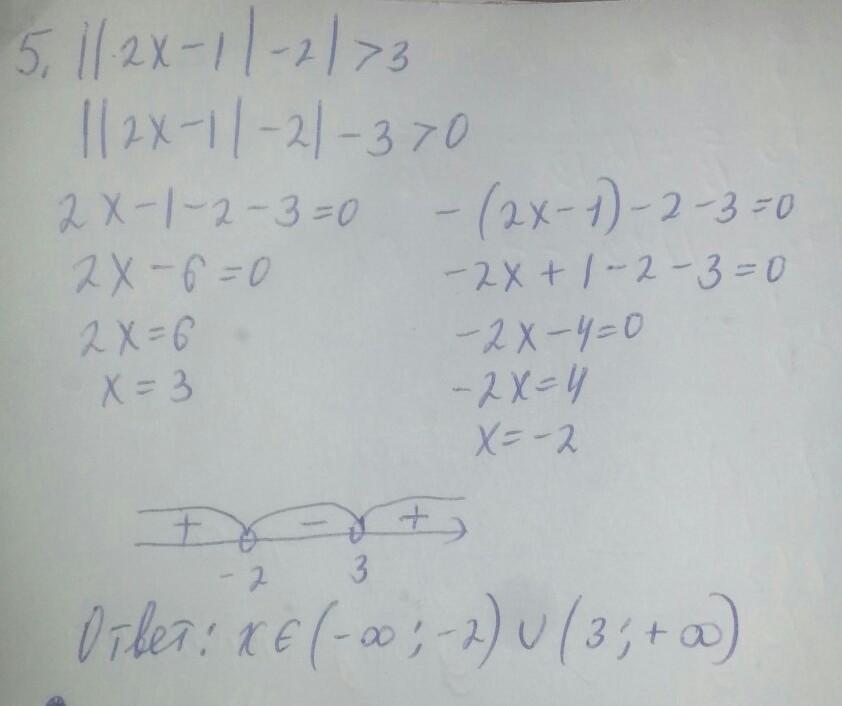 5. ||2x-1|-2|>3
||2x-1|-2|-3>0
2x-1-2-3=0
-(2x-1)-2-3=0
2x-6=0
-2x+1-2-3=0
2x=6
-2x-4=0
x=3
-2x=4
x=-2
+ - +
-2 3
Ответ: x∈(-∞;-2)∪(3;+∞)